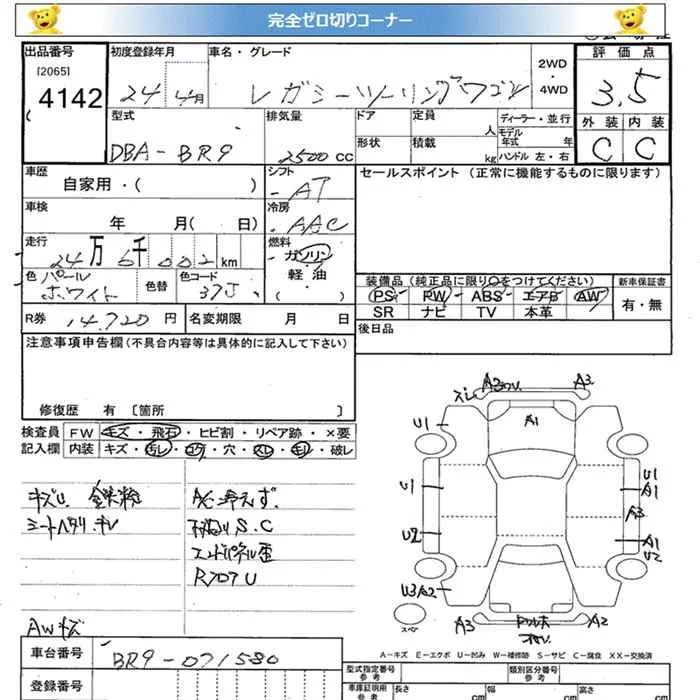 完全ゼロ切りコーナー
出品番号
[2065]
4142
初度登録年月
24 年 4月
車名・グレード
レガシーツーリングワゴン
2WD
・
4WD
評価点
3.5
外装 内装
C C
型式
DBA-BR9
排気量
2500 CC
ドア
形状
定員
人
積載
kg
ディーラー・並行
モデル
年式 年
ハンドル 左・右
車歴
自家用・( )
シフト
AT
冷房
AAC
セールスポイント (正常に機能するものに限ります)
車検
年 月( 日)
走行
24万6千002km
燃料
ガソリン
軽・油
( )
色 パール
ホワイト
色替
色コード
37J
R券 14,720 円
名変期限 月 日
装備品(純正品に限り○をつけてください)
PS・PW・ABS・エアB・AW
SR ナビ TV 本革
新車保証書
有・無
後日品
注意事項申告欄(不具合内容等は具体的に記入して下さい)
修復歴 有 〔箇所 〕
検査員
記入欄
FW キズ・飛石・ヒビ割・リペア跡・×要
内装 キズ・汚レ・コゲ・穴・スレ・キレ・破レ
キズU 鉄粉
シートヘタリ.キレ
A/C冷えず.
下廻りS.C
エンドパネル歪
RフロアU
AWキズ
車台番号
BR9-071580
登録番号
A3 A3
スレ
A1
U1
U1
U2
U3A2
U1
A1
A3
A1
U2
A3 A2
スペア
A-キズ E-エクボ U-凹み W-補修跡 S-サビ C-腐食 XX-交換済
型式指定番号
参考
類別区分番号
参考
車庫証明用
参考
長さ cm
幅 cm
高さ cm